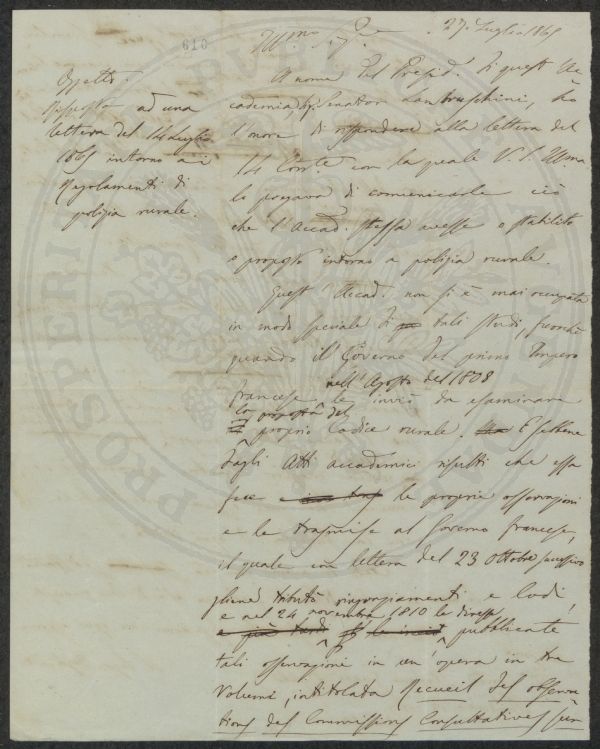 610
27. Luglio 1865
Ill.mo Sig.e
Oggetto.
Risposta ad una
lettera del 14 Luglio
1865 intorno ai
Regolamenti di
polizia rurale.
A nome del Presid. di quest' Ac
cademia, Sig. Senator Lambruschini, ho
l'onore di rispondere alla lettera del
14 Corr.te con la quale V. S. Ill.ma
lo pregava di comunicarle ciò
che l'Accad. stessa avesse o stabilito
o proposto intorno a polizia rurale.
Quest' Accad. non si è mai occupata
in modo speciale di tali studi, fuorchè
quando il Governo del primo Impero
nell' Agosto del 1808
francese le inviò da esaminare
la proposta del
proprio Codice rurale. E sebbene
dagli Atti accademici risulti che essa
fece le proprie osservazioni
e le trasmise al Governo francese,
il quale con lettera del 23 ottobre successivo
gliene tributò ringraziamenti e lodi,
e nel 24 novembre 1810 le diresse
e più tardi pubblicate
tali osservazioni in un' opera in tre
Volumi, intitolata Recueil des observa
tions des Commissions Consultatives sur
PROSPERITÀ
PUBLICA